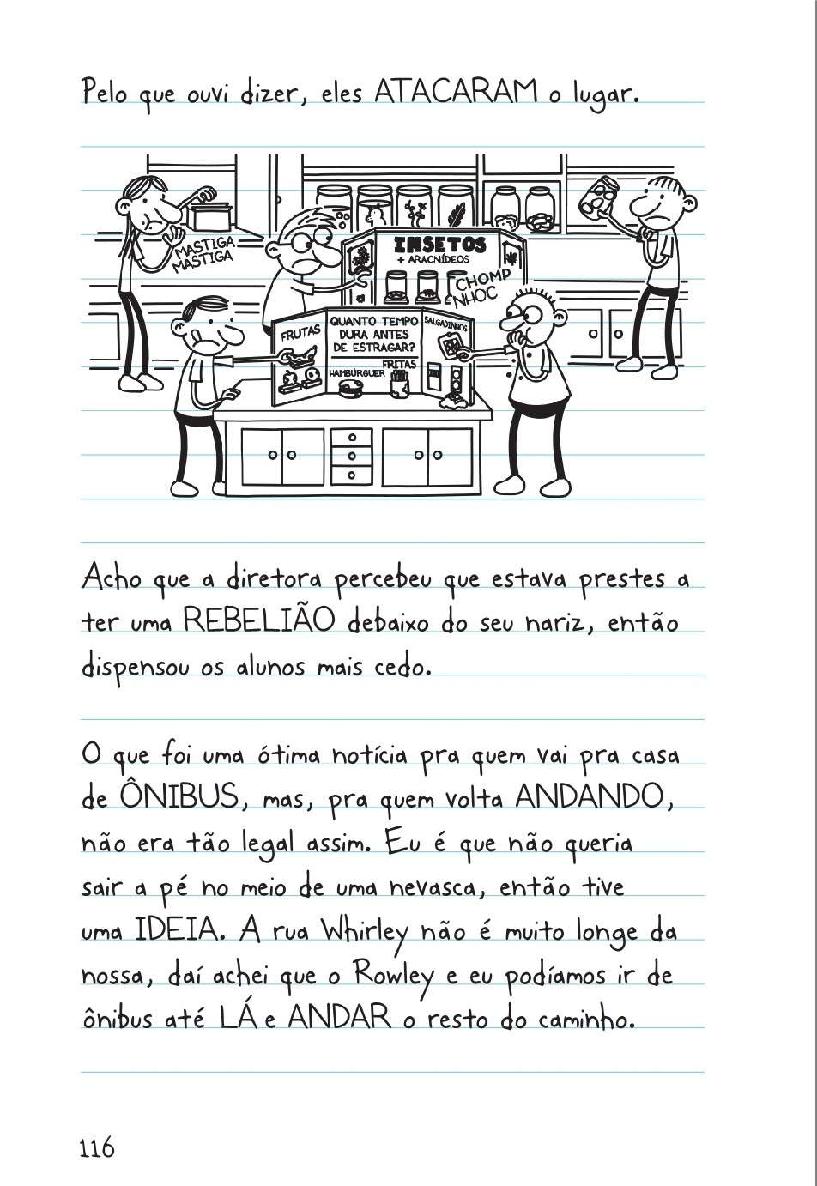 Pelo que ouvi dizer, eles ATACARAM o lugar.
MASTIGA
MASTIGA
INSETOS
+ ARACNÍDEOS
CHOMP
NHOC
FRUTAS
QUANTO TEMPO
DURA ANTES
DE ESTRAGAR?
SALGADINHOS
FRITAS
HAMBÚRGUER
Acho que a diretora percebeu que estava prestes a
ter uma REBELIÃO debaixo do seu nariz, então
dispensou os alunos mais cedo.
O que foi uma ótima notícia pra quem vai pra casa
de ÔNIBUS, mas, pra quem volta ANDANDO,
não era tão legal assim. Eu é que não queria
sair a pé no meio de uma nevasca, então tive
uma IDEIA. A rua Whirley não é muito longe da
nossa, daí achei que o Rowley e eu podíamos ir de
ônibus até LÁ e ANDAR o resto do caminho.
116